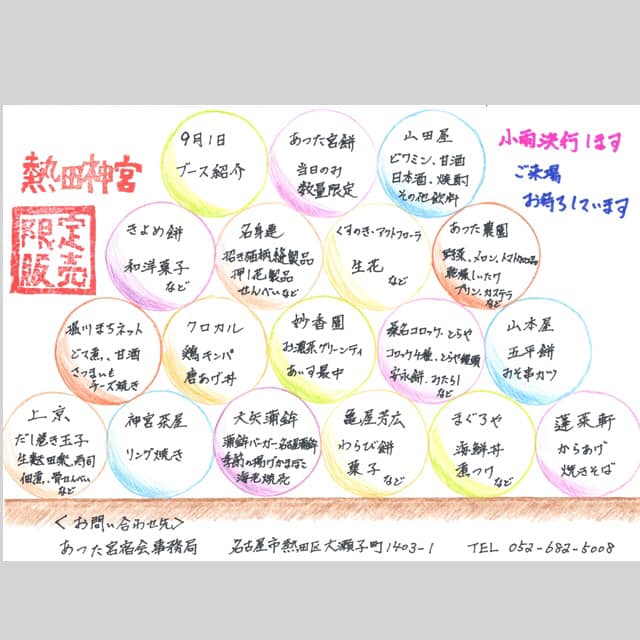 熱田神宮
限定
販売
9月1日
ブース紹介
あった宮餅
当日のみ
数量限定
山田屋
ビワミン、甘酒
日本酒、焼酎
その他飲料
小雨決行します
ご来場
お待ちしています
きよめ餅
和洋菓子
など
招き猫柄縫製品
押し花製品
せんべいなど
くすのき・アクトフローラ
生花
など
あった農園
野菜、メロン、トマト
乾燥しいたけ
プリン、カステラ
など
堀川まちネット
どて煮、甘酒
さつまいも
チーズ焼き
クロカル
鶏キンパ
唐あげ丼
妙香園
お濃茶グリーンティ
あいす最中
桑名コロッケ・とらや
コロッケ4種、とらや饅頭
みたらし
など
山本屋
五平餅
みそ串カツ
上京
だし巻き玉子
生麩田楽、寿司
佃煮、骨せんべい
など
神宮茶屋
リング焼き
大矢蒲鉾
蒲鉾バーガー、名古屋蒲鉾
季節の揚げかまぼこ
海老焼売
亀屋芳広
わらび餅
菓子
など
まぐろや
海鮮丼
煮つけ
など
蓬莱軒
からあげ
焼きそば
＜お問い合わせ先＞
あった宮宿会事務局 名古屋市熱田区大瀬子町1403-1 TEL 052-682-5008